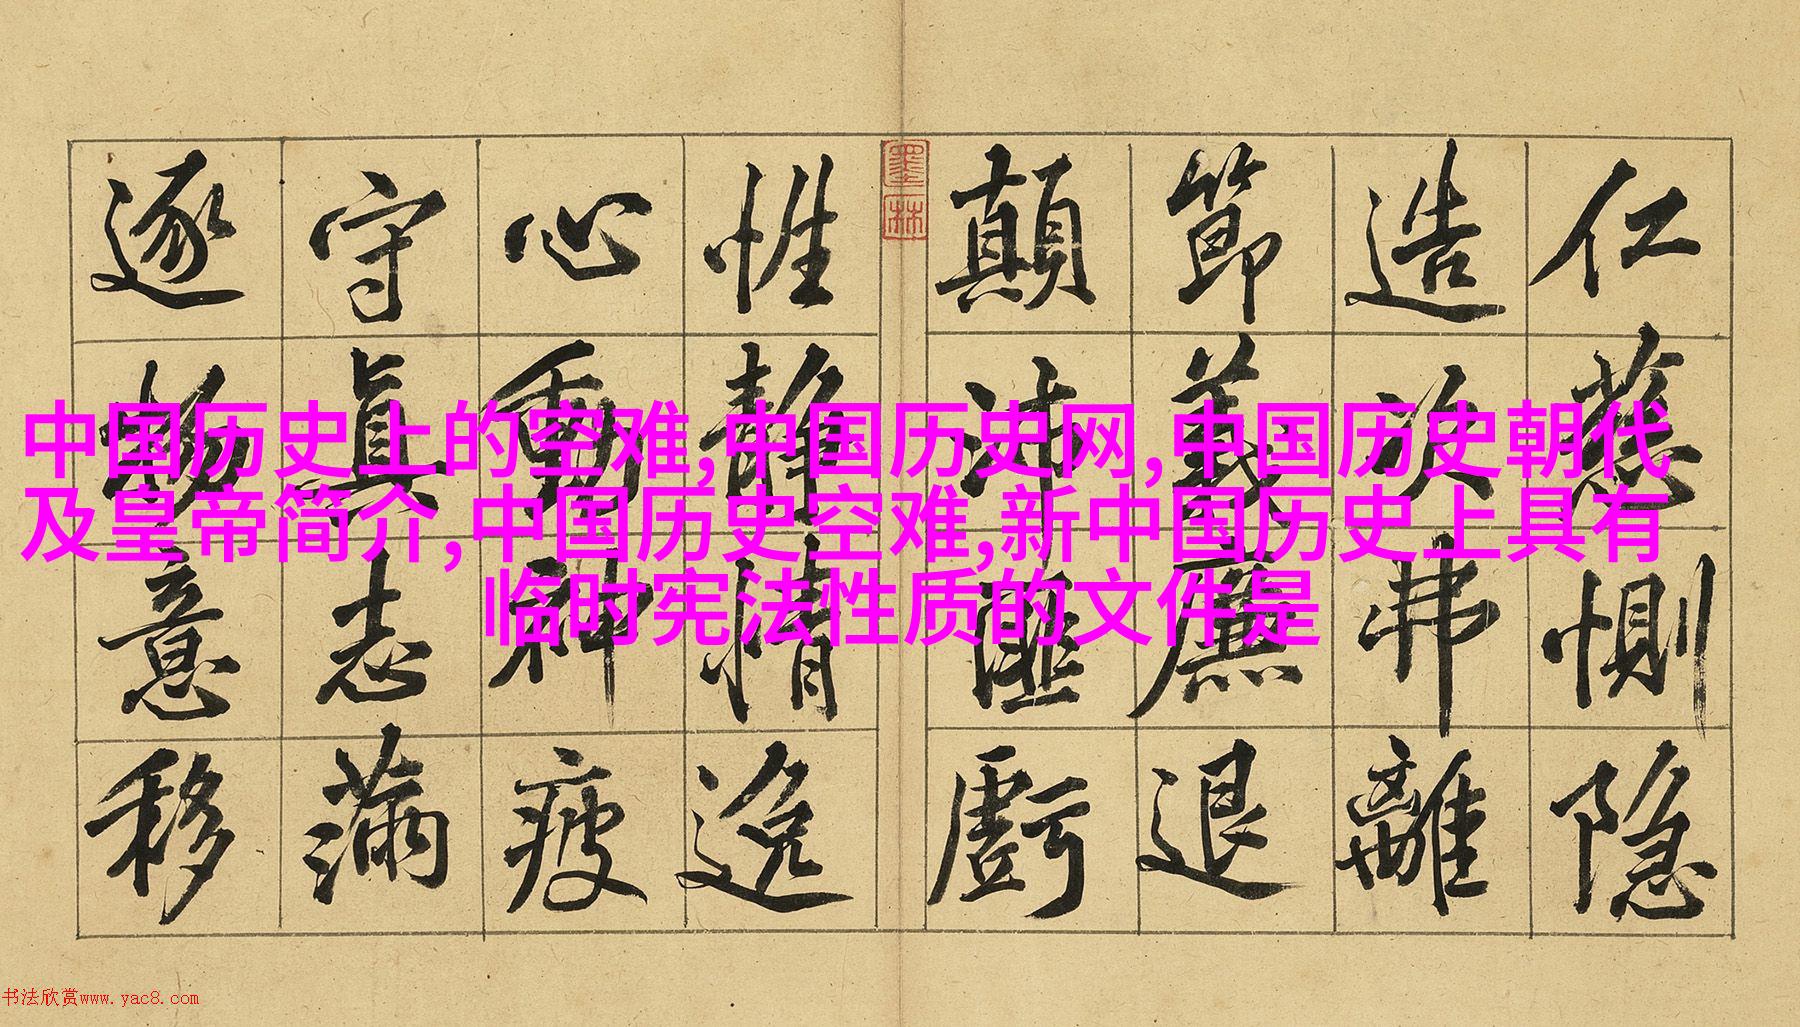 仁慈惻隐
造次弗離
節義廉退
顛沛匪虧
性靜情逸
心動神疲
守眞志滿
逐物意移
墨林
中国历史上的空难,中国历史网,中国历史朝代
及皇帝简介,中国历史空难,新中国历史上具有
临时宪法性质的文件是
书法欣赏www.yac8.com